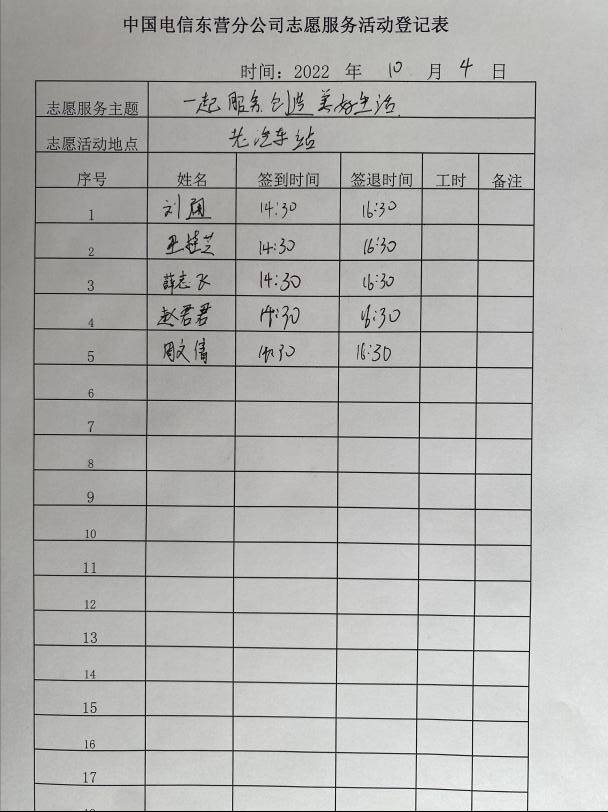 中国电信东营分公司志愿服务活动登记表
时间：2022 年 10 月 4 日
志愿服务主题 一起服务创造美好生活
志愿活动地点 老汽车站
序号 姓名 签到时间 签退时间 工时 备注
1 刘 14:30 16:30
2 王桂芝 14:30 16:30
3 薛志飞 14:30 16:30
4 赵君君 14:30 16:30
5 周文倩 14:30 16:30
6
7
8
9
10
11
12
13
14
15
16
17